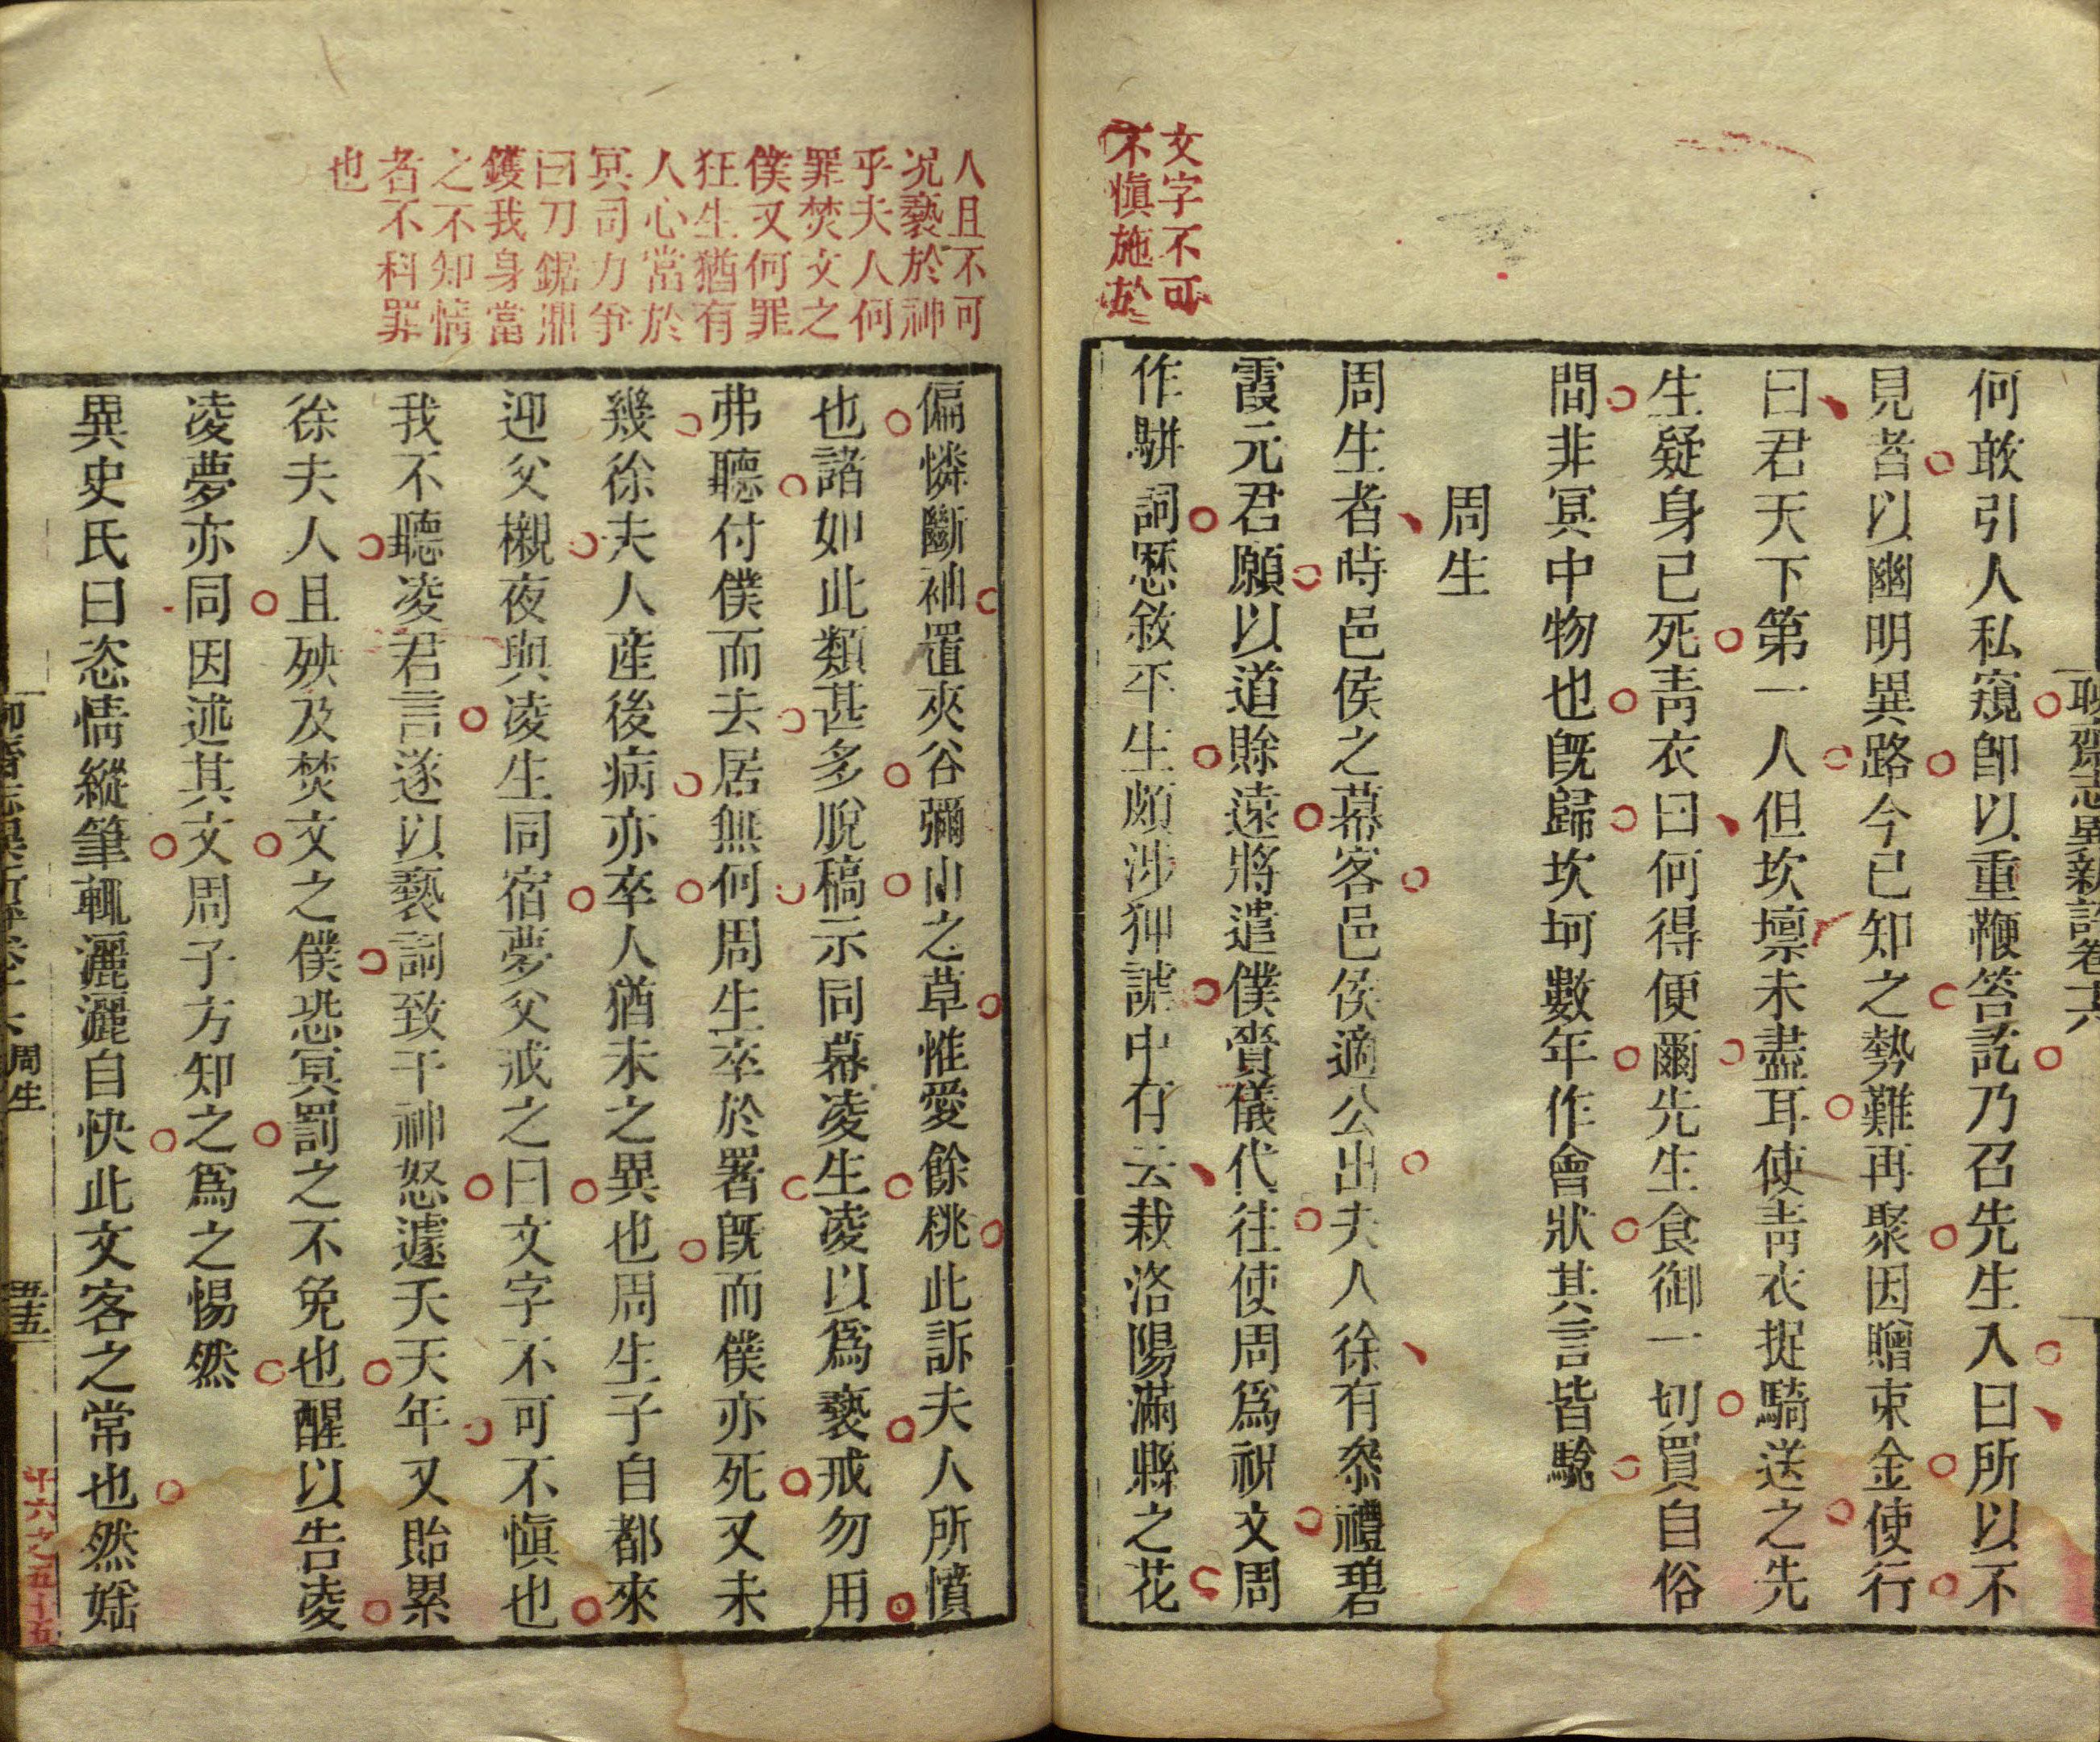 聊齋志異新評卷十六
何敢引人私窺卽以重鞭笞訖乃召先生入曰所以不
見者以幽明異路今已知之勢難再聚因贈束金使行
曰君天下第一人但坎壈未盡耳使靑衣捉騎送之先
生疑身已死靑衣曰何得便爾先生食御一切買自俗
間非冥中物也旣歸坎坷數年作會狀其言皆驗
周生
周生者時邑侯之幕客邑侯適公出夫人徐有叅禮碧
霞元君願以道賖遠將遣僕賫儀代往使周爲祝文周
作駢詞歷敘平生頗涉狎謔中有云栽洛陽滿縣之花
文字不可
不愼施於
人且不可
况褻於神
乎夫人何
罪焚文之
僕又何罪
狂生猶有
人心當於
冥司力爭
曰刀鋸鼎
鑊我身當
之不知情
者不科罪
也
偏憐斷袖置夾谷彌山之草惟愛餘桃此訴夫人所憤
也諸如此類甚多脫稿示同幕凌生凌以爲褻戒勿用
弗聽付僕而去居無何周生卒於署旣而僕亦死又未
幾徐夫人産後病亦卒人猶未之異也周生子自都來
迎父櫬夜與凌生同宿夢父戒之曰文字不可不愼也
我不聽凌君言遂以褻詞致干神怒遽夭天年又貽累
徐夫人且殃及焚文之僕恐冥罰之不免也醒以告凌
凌夢亦同因述其文周子方知之爲之惕然
異史氏曰恣情縱筆輒灑灑自快此文客之常也然婬
周生
十六之五十五